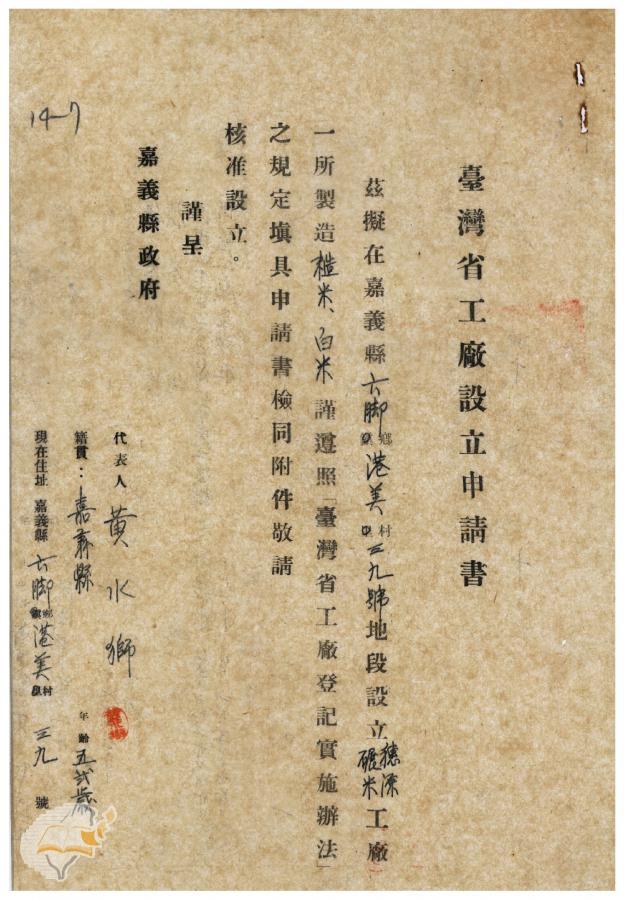 臺灣省工廠設立申請書
茲擬在嘉義縣六脚鄉鎮港美村里三九號地段設立穗源碾米工廠
一所製造糙米、白米謹遵照「臺灣省工廠登記實施辦法」
之規定填具申請書檢同附件敬請
核准設立。
謹呈
嘉義縣政府
代表人 黃水獅
籍貫：嘉義縣 年齡 五弍歲
現在住址 嘉義縣六脚鄉鎮港美村里三九號
14-7